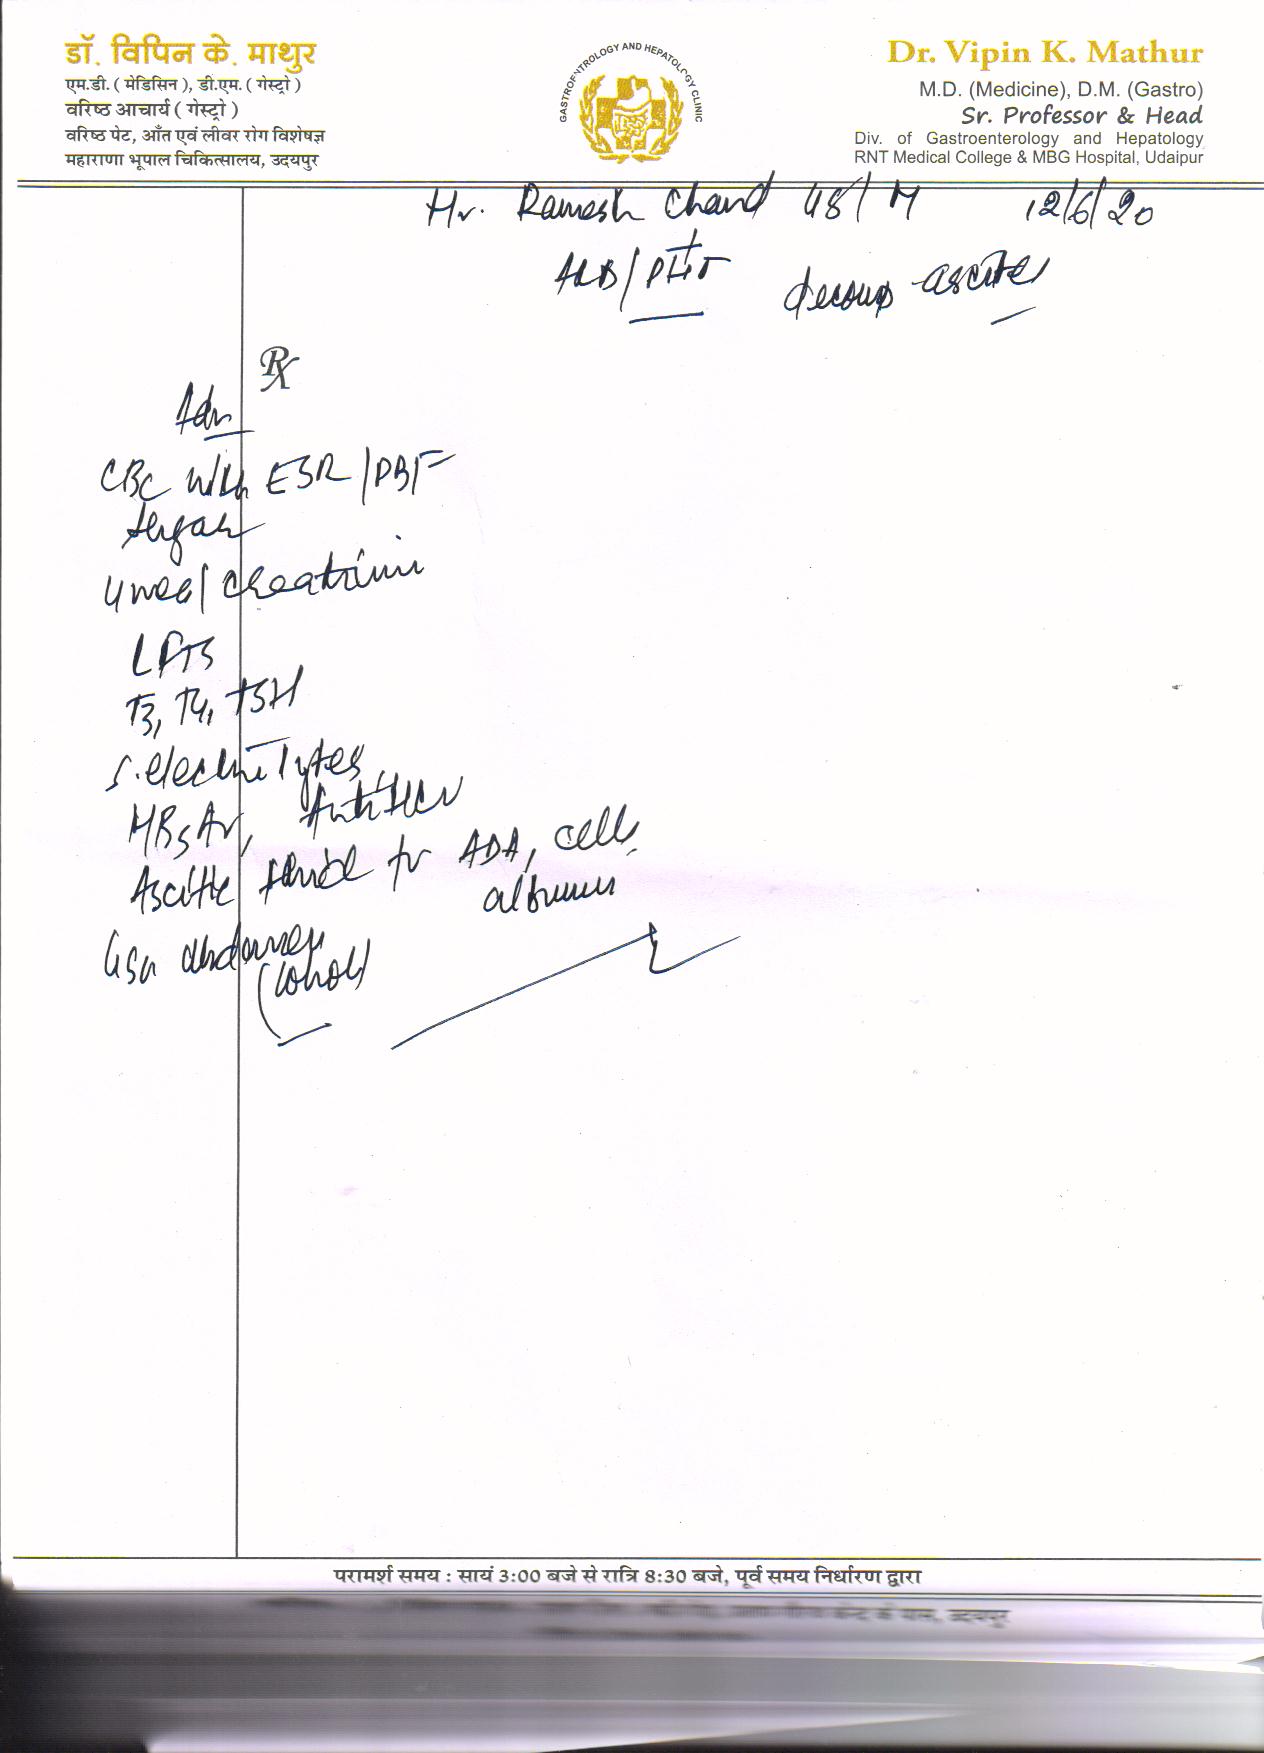 डॉ. विपिन के. माथुर
एम.डी. ( मेडिसिन ), डी.एम. ( गेस्ट्रो )
वरिष्ठ आचार्य ( गेस्ट्रो )
वरिष्ठ पेट, आँत एवं लीवर रोग विशेषज्ञ
महाराणा भूपाल चिकित्सालय, उदयपुर
GASTROENTROLOGY AND HEPATOLOGY CLINIC
Dr. Vipin K. Mathur
M.D. (Medicine), D.M. (Gastro)
Sr. Professor & Head
Div. of Gastroenterology and Hepatology
RNT Medical College & MBG Hospital, Udaipur
Mr. Ramesh Chand 48/M 12/6/20
PHT
Rx
Adv
CBC with ESR/PBF
LFTs
T3, T4, TSH
S. electrolytes
HBsAg, Anti HCV
Ascitic fluid for ADA, cells,
albumin
abdomen
(whole)
परामर्श समय : सायं 3:00 बजे से रात्रि 8:30 बजे, पूर्व समय निर्धारण द्वारा